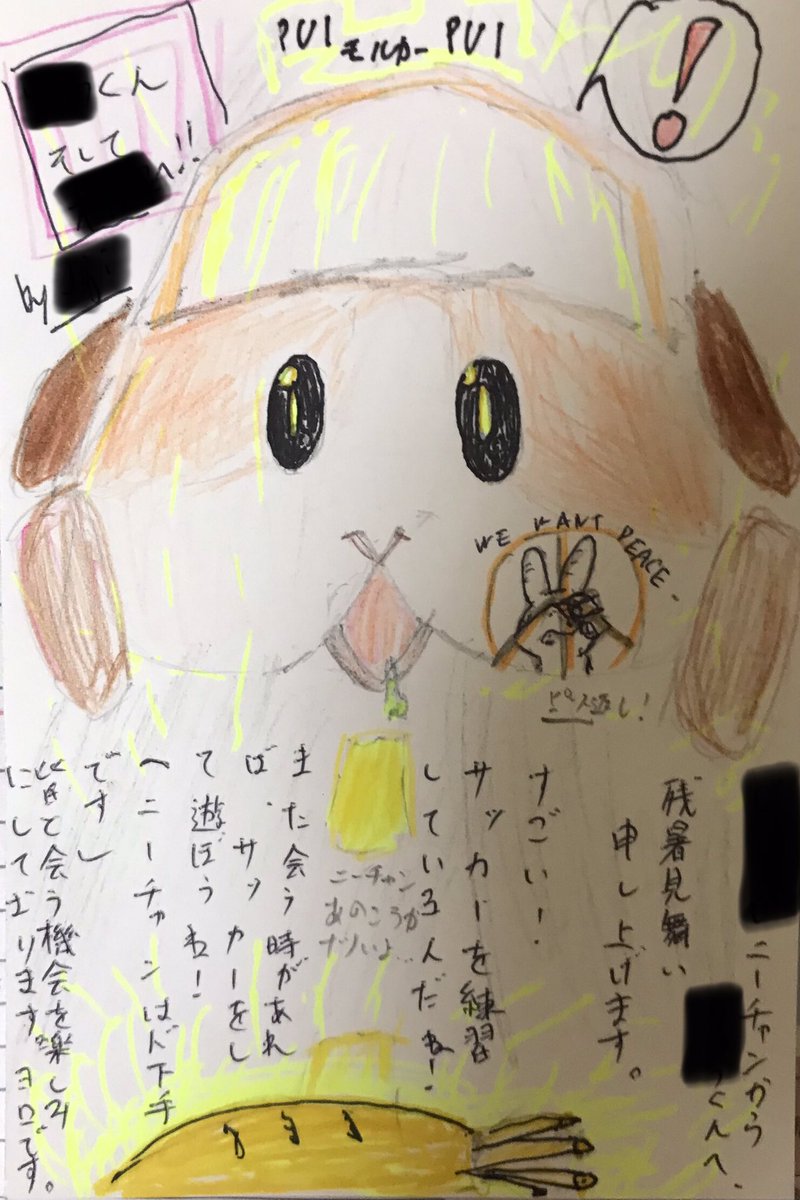 PUI モルカー PUI
くん
そして
へ!!
by
WE WANT PEACE.
返し!
ニーチャンから
くんへ、
残暑見舞い
申し上げます。
すごい!
サッカーを練習
しているんだね!
また会う時があれ
ば、サッカーをし
て遊ぼうね!
ニーチャンはド下手
ですし
皆で会う機会を楽しみ
にしております。ヨロです。
ニーチャン